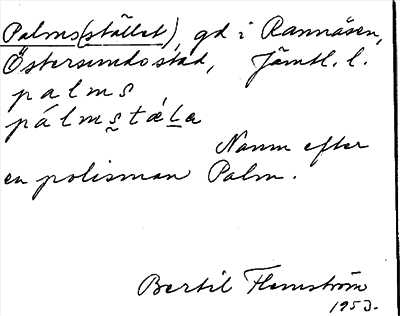 Palms(stället), gd i Rannåsen,
Östersunds stad, Jämtl. l.
palms
pálms̰tæ̀ḻa
Namn efter
en polisman Palm.
Bertil Flemström
1953.